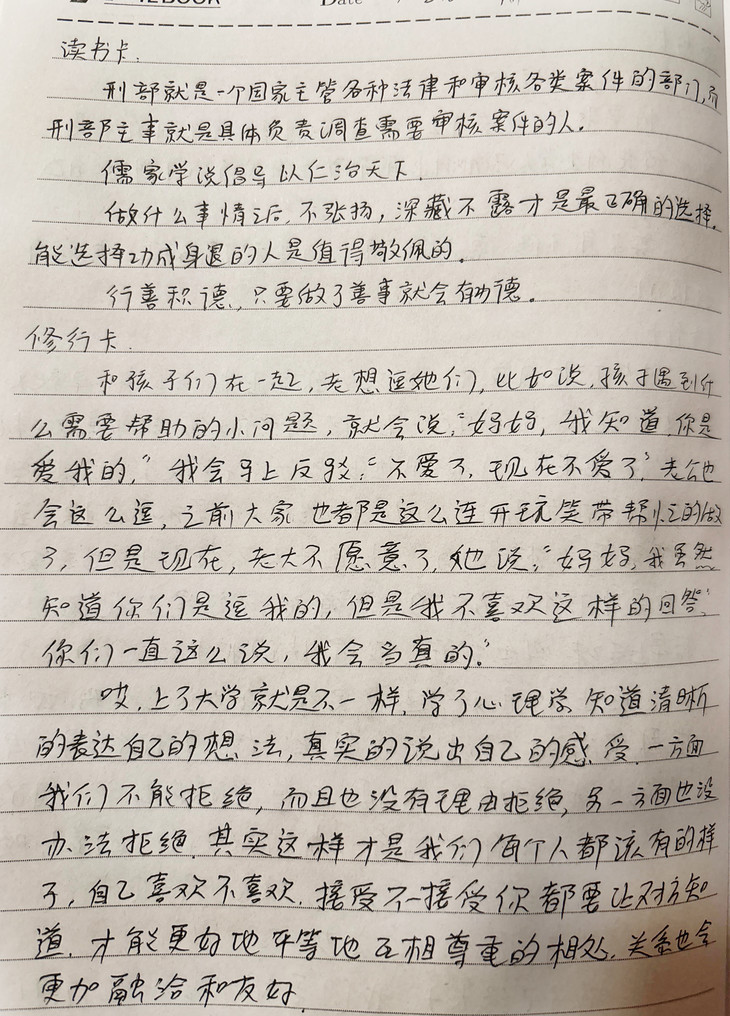 NOTEBOOK Date
读书卡.
刑部就是一个国家主管各种法律和审核各类案件的部门,而
刑部主事就是具体负责调查需要审核案件的人.
儒家学说倡导以仁治天下.
做什么事情之后,不张扬,深藏不露才是最正确的选择.
能选择功成身退的人是值得敬佩的.
行善积德,只要做了善事就会有功德。
修行卡.
和孩子们在一起,老想逗她们,比如说,孩子遇到什
么需要帮助的小问题,就会说:“妈妈,我知道,你是
爱我的,”我会马上反驳:“不爱了,现在不爱了”老公也
会这么逗,之前大家也都是这么连开玩笑带帮忙的做
了,但是现在,老大不愿意了,她说:“妈妈,我虽然
知道你们是逗我的,但是我不喜欢这样的回答,
你们一直这么说,我会当真的.”
哎,上了大学就是不一样,学了心理学,知道清晰
的表达自己的想法,真实的说出自己的感受,一方面
我们不能拒绝,而且也没有理由拒绝,另一方面也没
办法拒绝.其实这样才是我们每个人都该有的样
子,自己喜欢不喜欢,接受不接受你都要让对方知
道,才能更好地平等地互相尊重的相处,关系也会
更加融洽和友好.